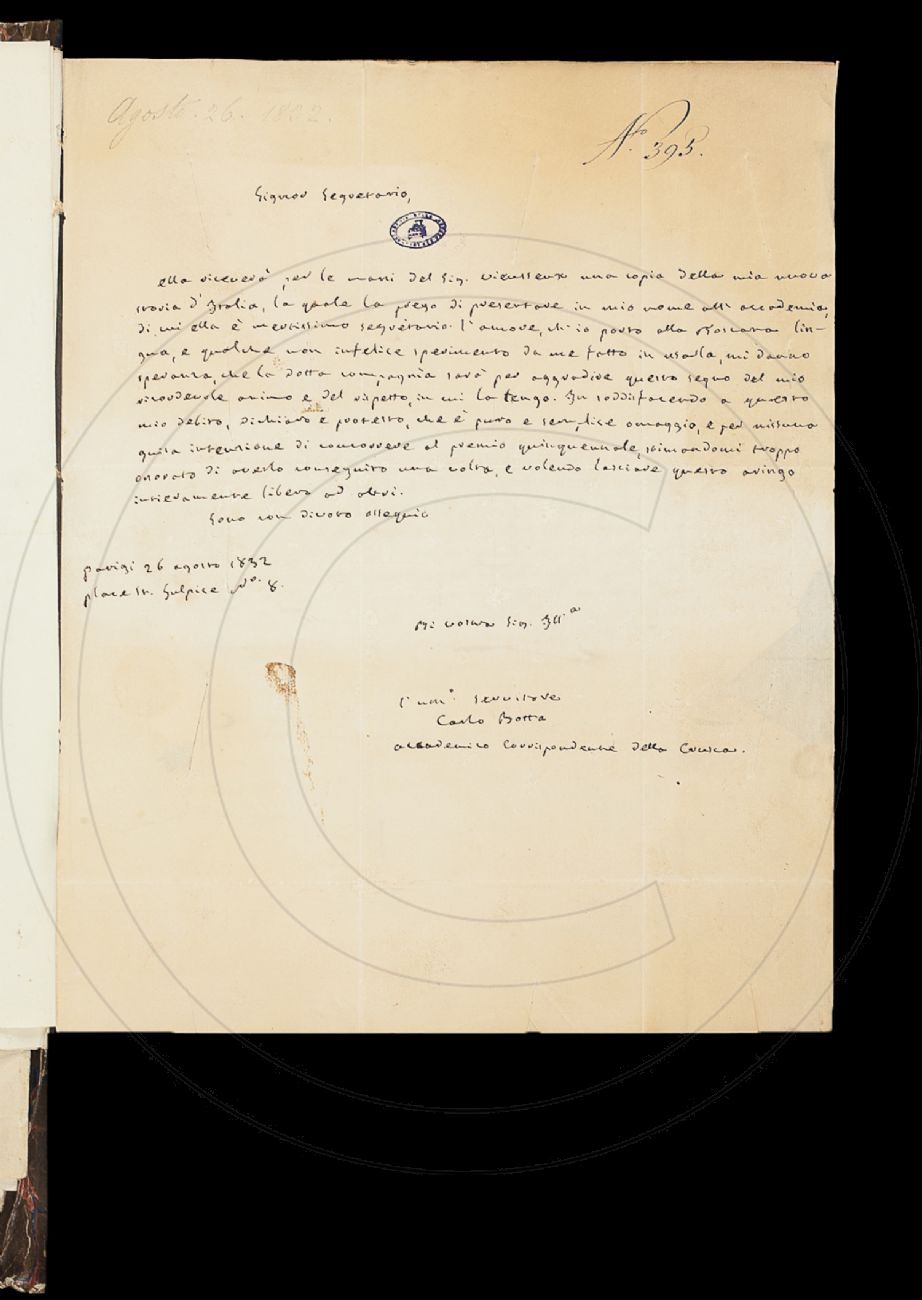 Agosto. 26. 1832.
N.º 395.
Signor Segretario,
ella riceverà, per le mani del Sig. Vieusseux una copia della mia nuova
storia d'Italia, la quale la prego di presentare in mio nome all'accademia,
di cui ella è meritissimo segretario. l'amore, ch'io porto alla Toscana lin-
gua, e qualche non infelice sperimento da me fatto in usarla, mi danno
speranza, che la dotta compagnia sarà per aggradire questo segno del mio
ricordevole animo e del rispetto, in cui la tengo. In soddisfacendo a questo
mio debito, dichiaro e protesto, che è puro e semplice omaggio, e per nissuna
guisa intenzione di concorrere al premio quinquennale, stimandomi troppo
onorato di averlo conseguito una volta, e volendo lasciare questo aringo
intieramente libero ad altri.
Sono con divoto ossequio
parigi 26 agosto 1832
place St. Sulpice N.º 8.
Di vostra Sig. Ill.a
l'um.º servitore
Carlo Botta
accademico Corrispondente della Crusca.